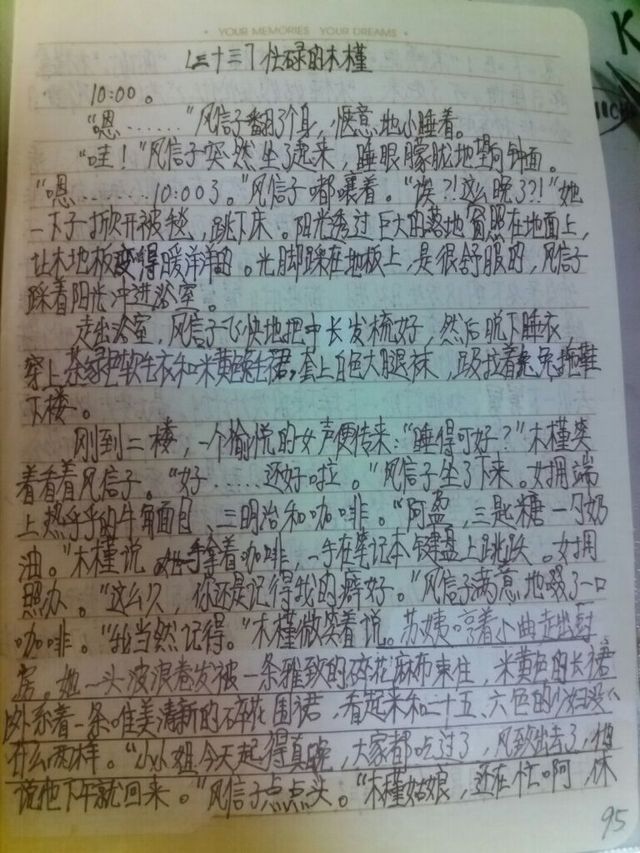 • YOUR MEMORIES YOUR DREAMS •
(三十三)忙碌的木槿
10:00。
“嗯……”风信子翻了个身，惬意地小睡着。
“哇！”风信子突然坐了起来，睡眼朦胧地望向钟面。
“嗯………10:00了。”风信子嘟囔着。“诶?!这么晚了?!”她
一下子掀开被毯，跳下床。阳光透过巨大的落地窗照在地面上，
让木地板变得暖洋洋的。光脚踩在地板上，是很舒服的，风信子
踩着阳光冲进浴室。
走出浴室，风信子飞快地把中长发梳好，然后脱下睡衣，
穿上茶绿色软毛衣和米黄色毛裙，套上白色大腿袜，趿拉着兔兔拖鞋
下楼。
刚到二楼，一个愉悦的女声便传来：“睡得可好？”木槿笑
着看着风信子。“好……还好啦。”风信子坐了下来。女拥端
上热乎乎的牛角面包、三明治和咖啡。“阿盈，三匙糖一勺奶
油。”木槿说，一手拿着咖啡，一手在笔记本键盘上跳跃。女拥
照办。“这么久，你还是记得我的癖好。”风信子满意地啜了一口
咖啡。“我当然记得。”木槿微笑着说。苏姨哼着小曲走出厨
房。她一头波浪卷发被一条雅致的碎花麻布束住，米黄色的长裙
外系着一条唯美清新的碎花围裙，看起来和二十五、六色的少妇没
什么两样。“小小姐今天起得真晚，大家都吃过了，风致出去了，他
说他下午就回来。”风信子点点头。“木槿姑娘，还在忙啊，休
95
K